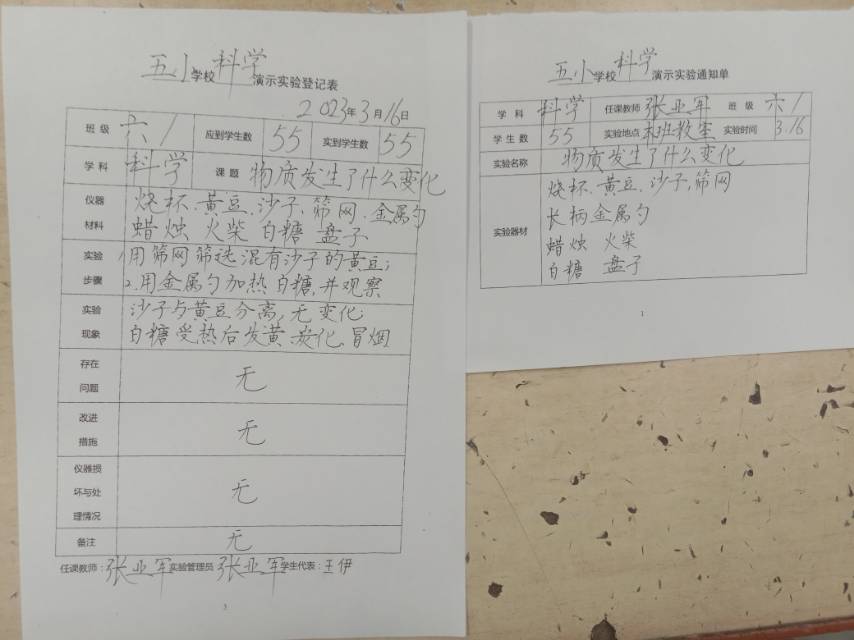 五小学校科学演示实验登记表
2023年3月16日
班级 六1 应到学生数 55 实到学生数 55
学科 科学 课题 物质发生了什么变化
仪器材料 烧杯、黄豆、沙子、筛网、金属勺
蜡烛 火柴 白糖 盘子
实验步骤 1.用筛网筛选混有沙子的黄豆;
2.用金属勺加热白糖,并观察
实验现象 沙子与黄豆分离,无变化;
白糖受热后发黄、炭化、冒烟
存在问题 无
改进措施 无
仪器损坏与处理情况 无
备注 无
任课教师:张业军 实验管理员 张业军 学生代表:王伊
五小学校科学演示实验通知单
学科 科学 任课教师 张业军 班级 六1
学生数 55 实验地点 本班教室 实验时间 3.16
实验名称 物质发生了什么变化
实验器材 烧杯、黄豆、沙子、筛网
长柄金属勺
蜡烛 火柴
白糖 盘子
1